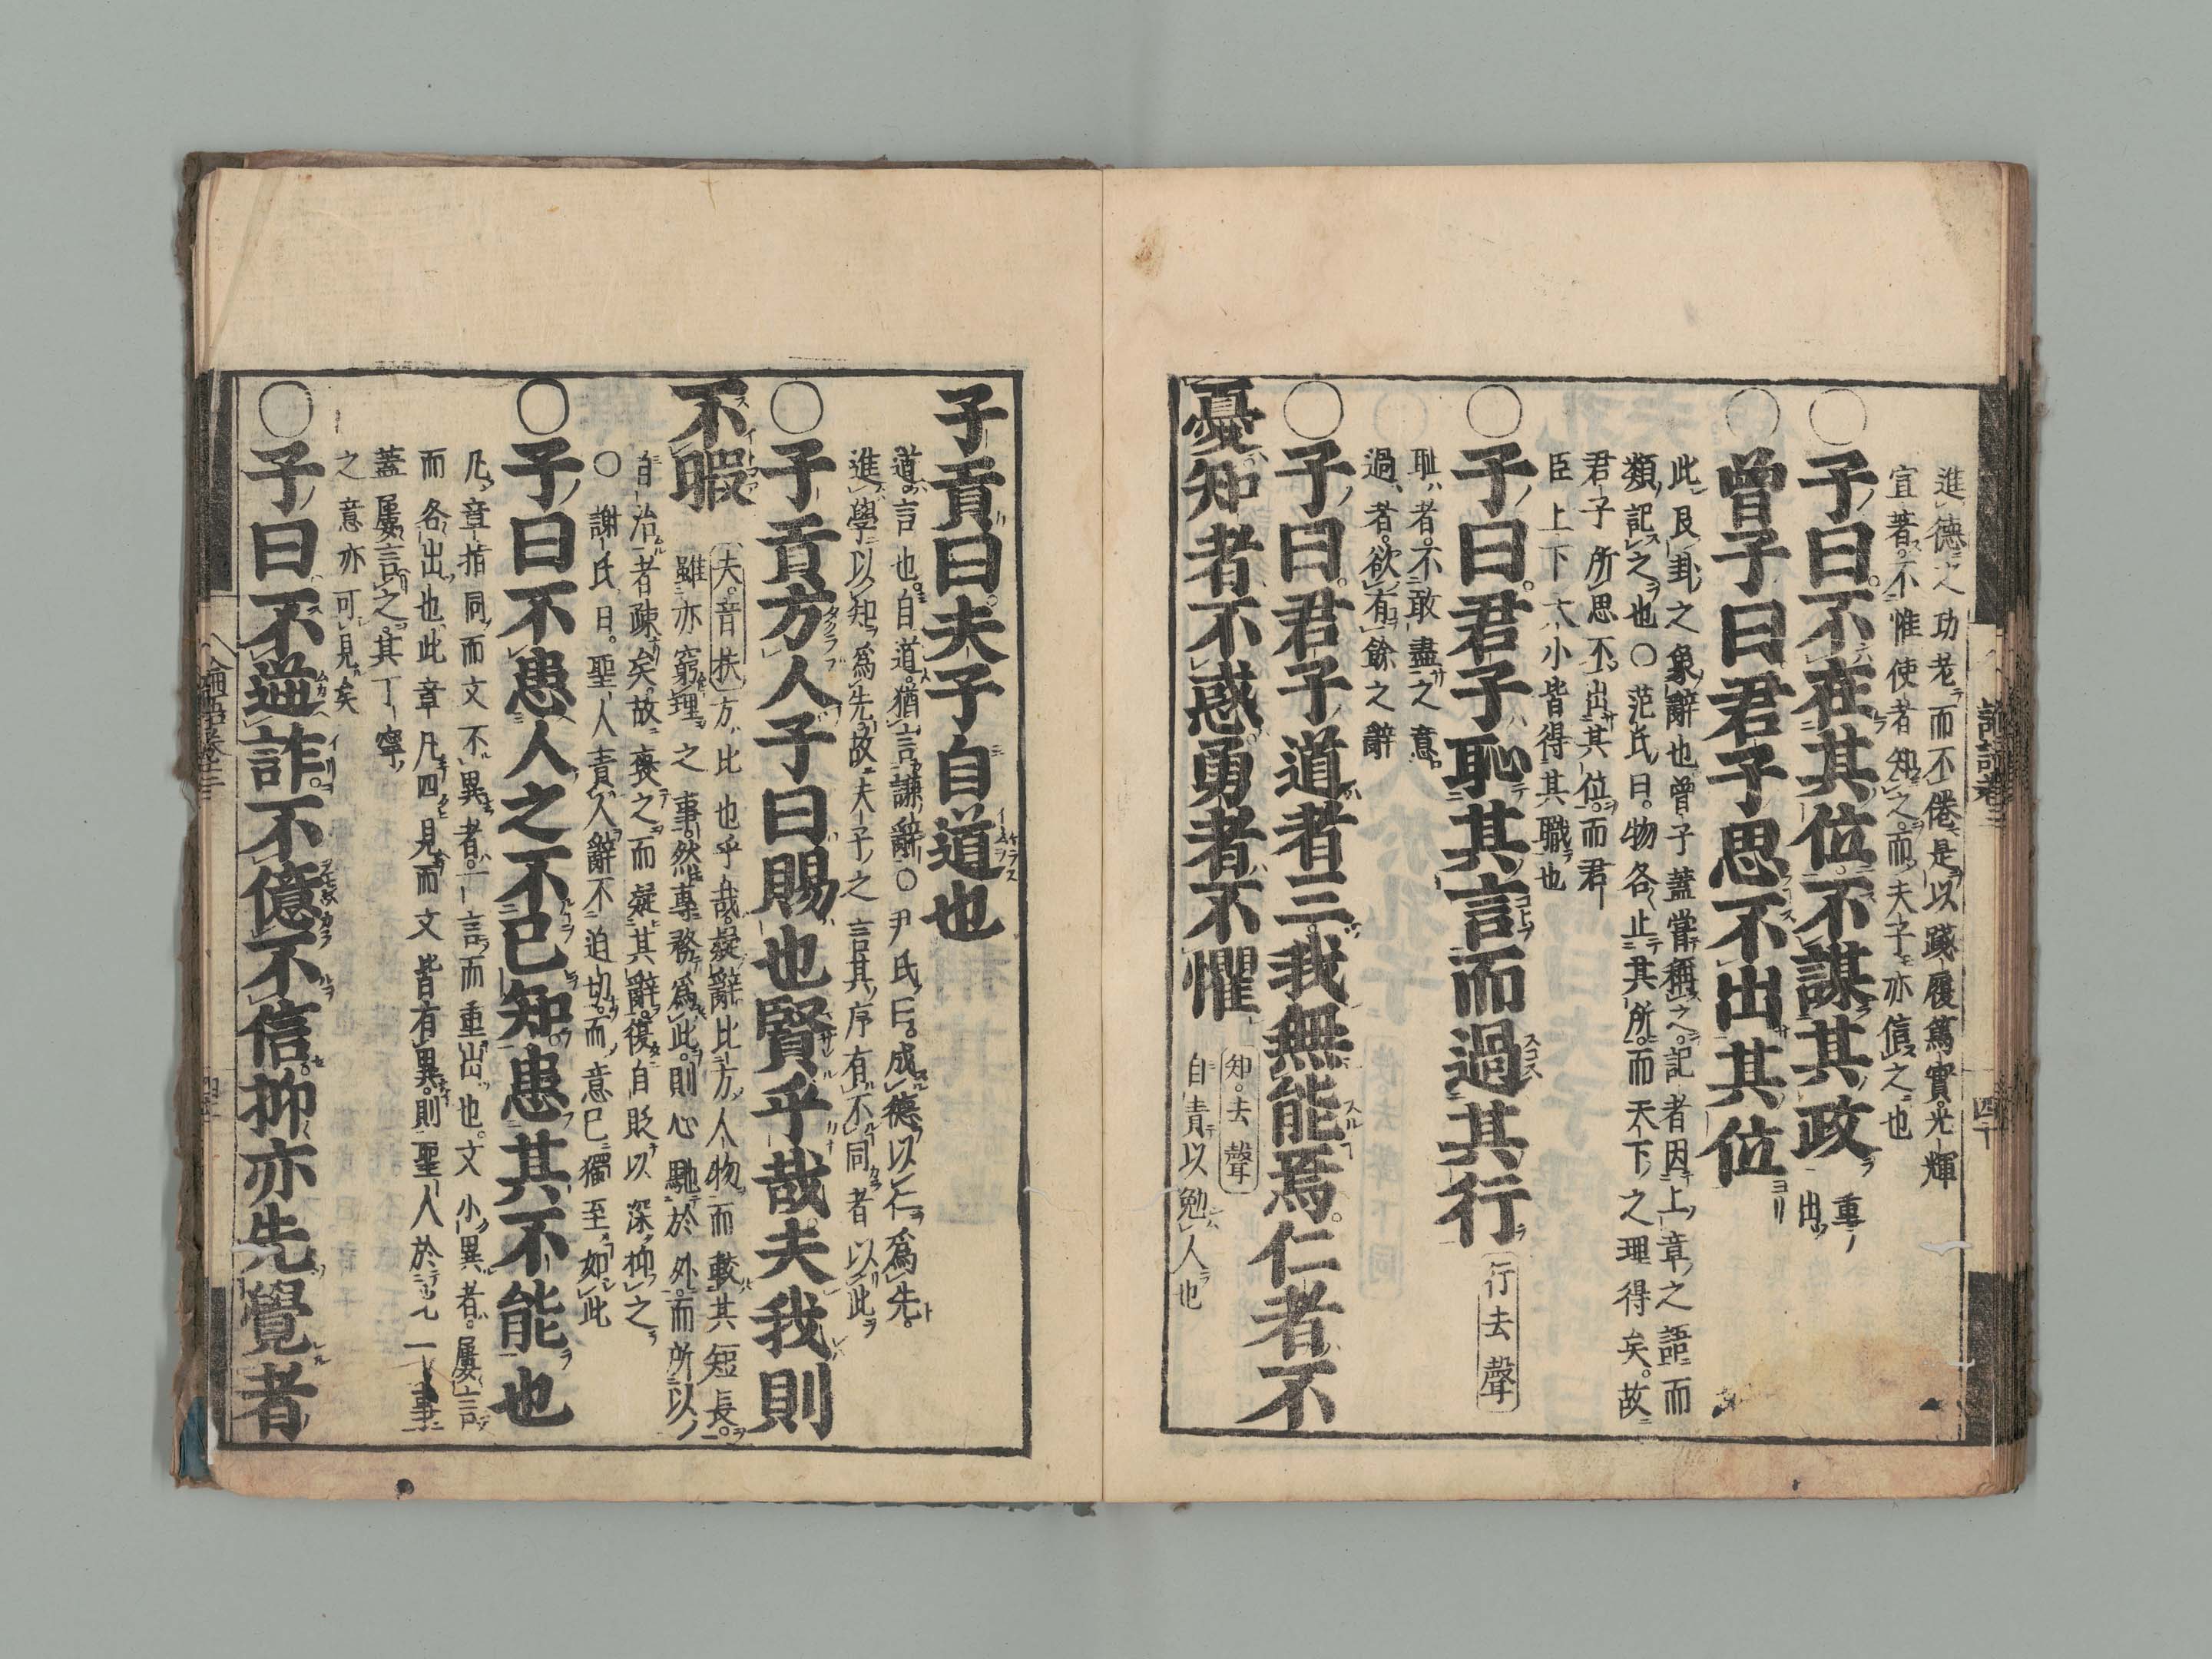 進德之功老而不倦是以踐履篤實光輝
宣著不惟使者知之而夫子亦信之也
○子曰不在其位不謀其政 重出
曾子曰君子思不出其位
此艮卦之象辭也曾子蓋嘗稱之記者因上章之語而
類記之也○范氏曰物各止其所而天下之理得矣故
君子所思不出其位而君
臣上下大小皆得其職也
○子曰君子恥其言而過其行 行去聲
恥者不敢盡之意
過者欲有餘之辭
○子曰君子道者三我無能焉仁者不
憂知者不惑勇者不懼 知去聲 自責以勉人也
子貢曰夫子自道也
道言也自道猶言謙辭○尹氏曰成德以仁爲先
進學以知爲先故夫子之言其序有不同者以此
○子貢方人子曰賜也賢乎哉夫我則
不暇 夫音扶方比也乎哉疑辭比方人物而較其短長
雖亦窮理之事然專務爲此則心馳於外而所以
自治者疎矣故褒之而疑其辭復自貶以深抑之
○謝氏曰聖人責人辭不迫切而意已獨至如此
○子曰不患人之不己知患其不能也
凡章指同而文不異者一言而重出也文小異者屢言
而各出也此章凡四見而文皆有異則聖人於此一事
蓋屢言之其丁寧
之意亦可見矣
○子曰不逆詐不億不信抑亦先覺者
論語卷三